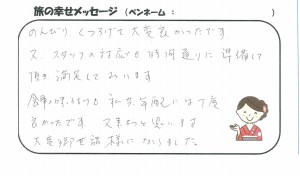 旅の幸せメッセージ (ペンネーム : )
のんびり、くつろげて大変良かったです
又、スタッフの対応も 時間通りに 準備して
頂き 満足しております
食事の味つけも 私共 年配には 丁度
良かったです 又来たいと思います
大変御世話様になりました。